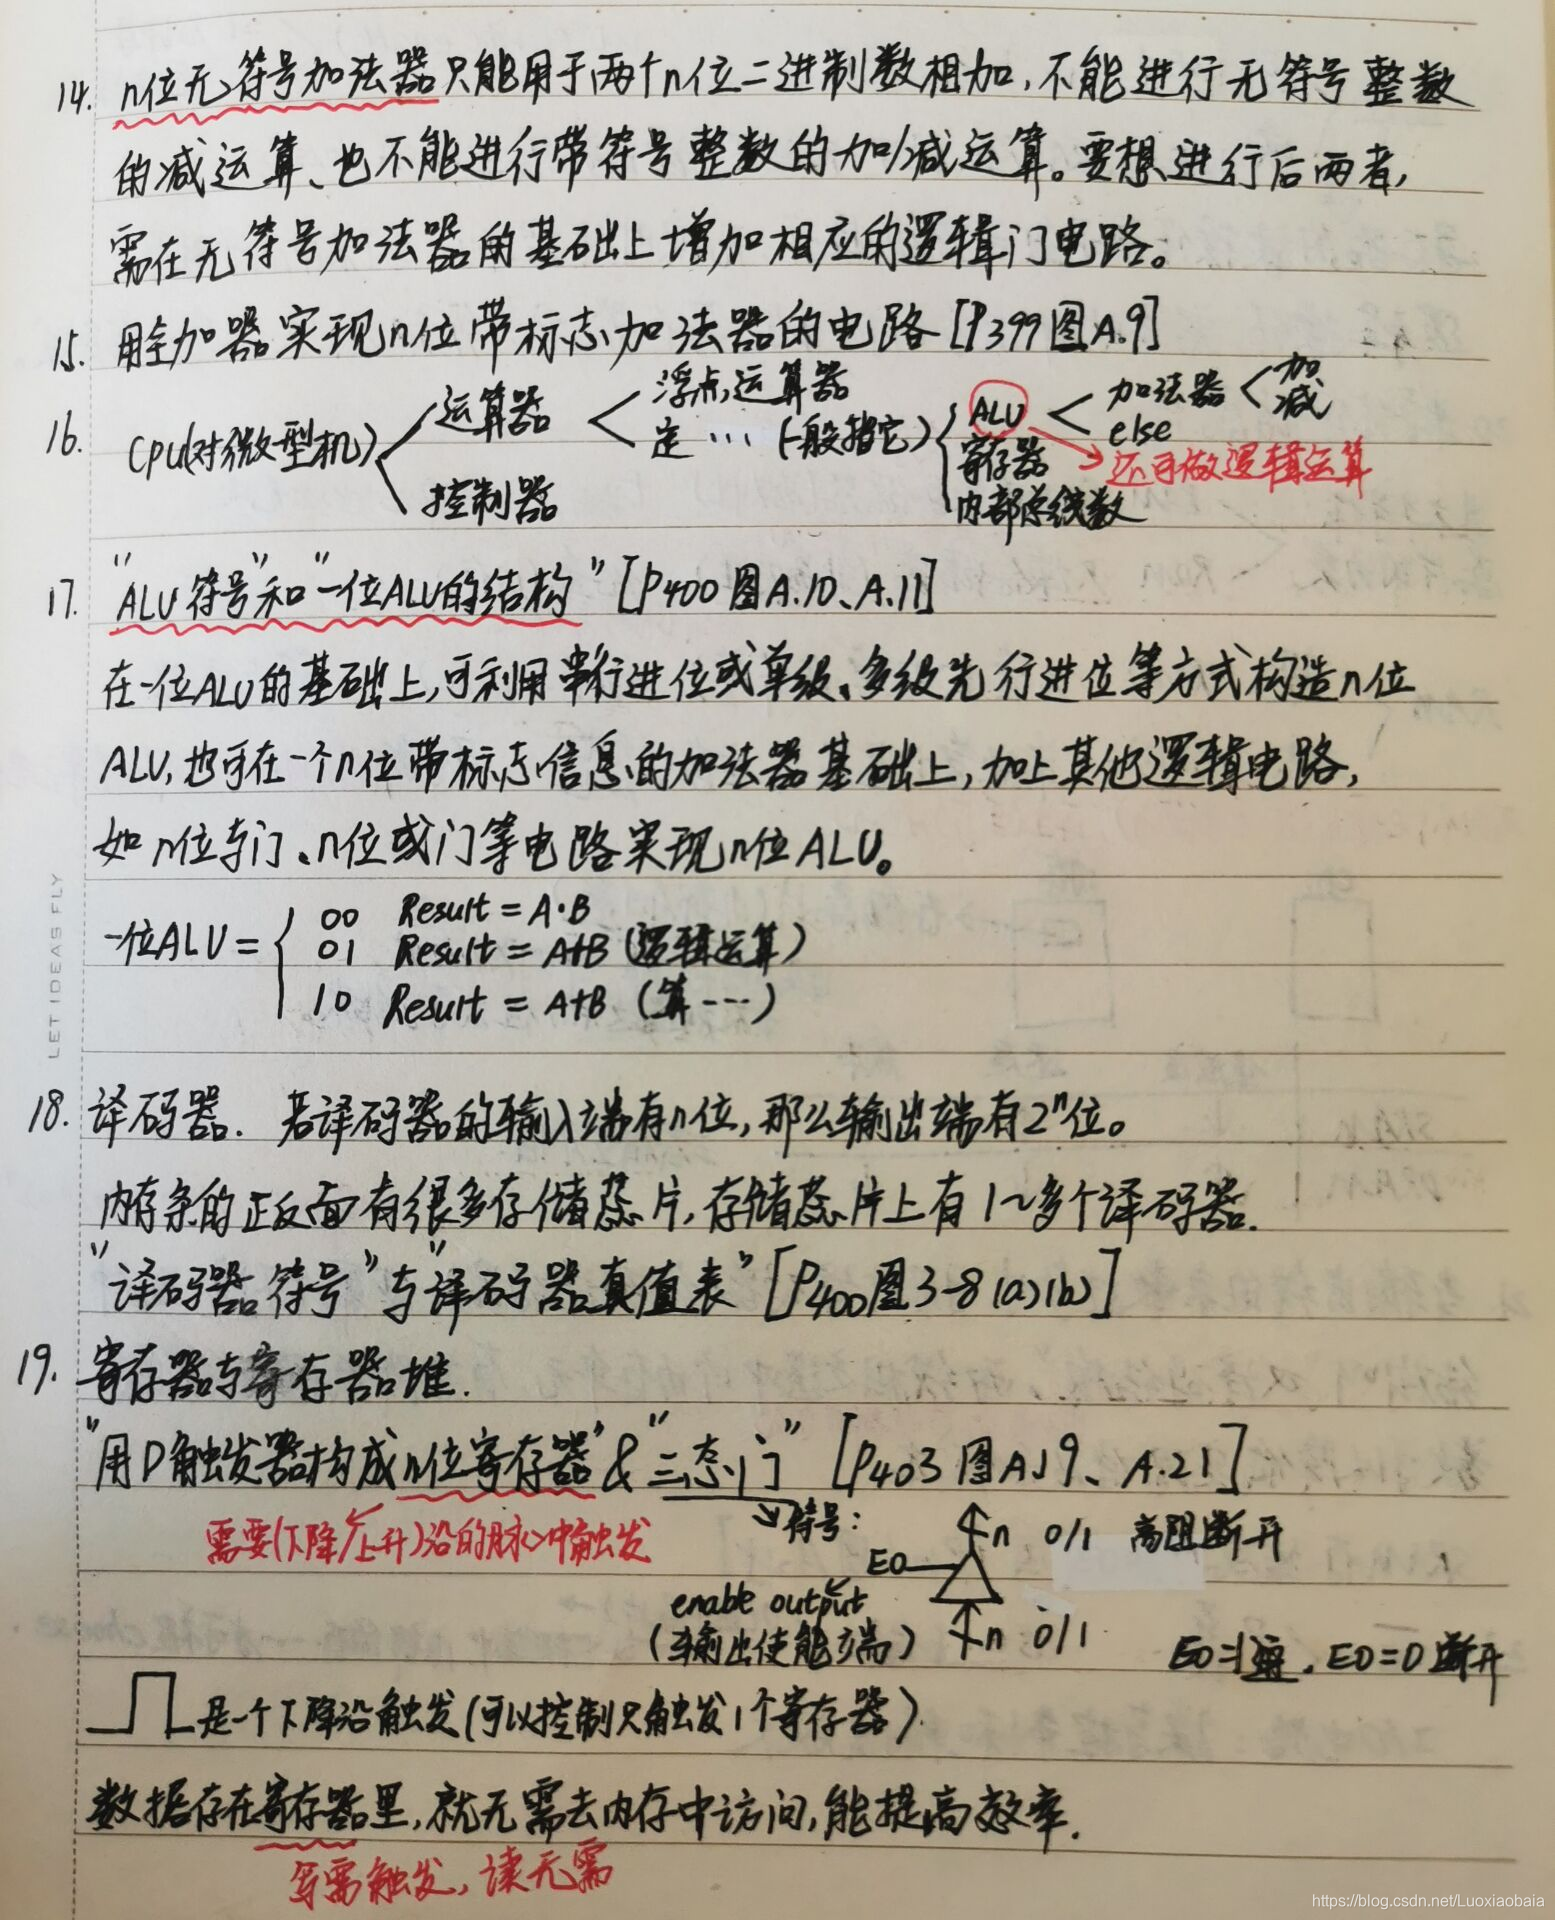 14. n位无符号加法器只能用于两个n位二进制数相加,不能进行无符号整数
的减运算、也不能进行带符号整数的加/减运算。要想进行后两者,
需在无符号加法器的基础上增加相应的逻辑门电路。
15. 用全加器实现n位带标志加法器的电路[P399图A.9]
16. CPU(对微型机) 运算器 浮点运算器 定…(一般指它) ALU 加法器 加
减
else
寄存器 还可做逻辑运算
控制器 内部总线数
17. "ALU符号"和"一位ALU的结构"[P400图A.10、A.11]
在一位ALU的基础上,可利用串行进位或单级、多级先行进位等方式构造n位
ALU,也可在一个n位带标志信息的加法器基础上,加上其他逻辑电路,
如n位与门、n位或门等电路实现n位ALU。
一位ALU= 00 Result=A·B
01 Result=A+B(逻辑运算)
10 Result=A+B(算…)
LET IDEAS FLY
18. 译码器. 若译码器的输入端有n位,那么输出端有2ⁿ位。
内存条的正反面有很多存储芯片,存储芯片上有1~多个译码器.
"译码器符号"与"译码器真值表"[P400图3-8(a)(b)]
19. 寄存器与寄存器堆.
"用D触发器构成n位寄存器"&"三态门"[P403图A.19、A.21]
需要(下降/上升)沿的脉冲触发 符号: n 0/1 高阻断开
EO
enable output
(输出使能端) n 0/1 EO=1通,EO=0断开
是一个下降沿触发(可以控制只触发1个寄存器).
数据存在寄存器里,就无需去内存中访问,能提高效率.
写需触发,读无需
https://blog.csdn.net/Luoxiaobaia